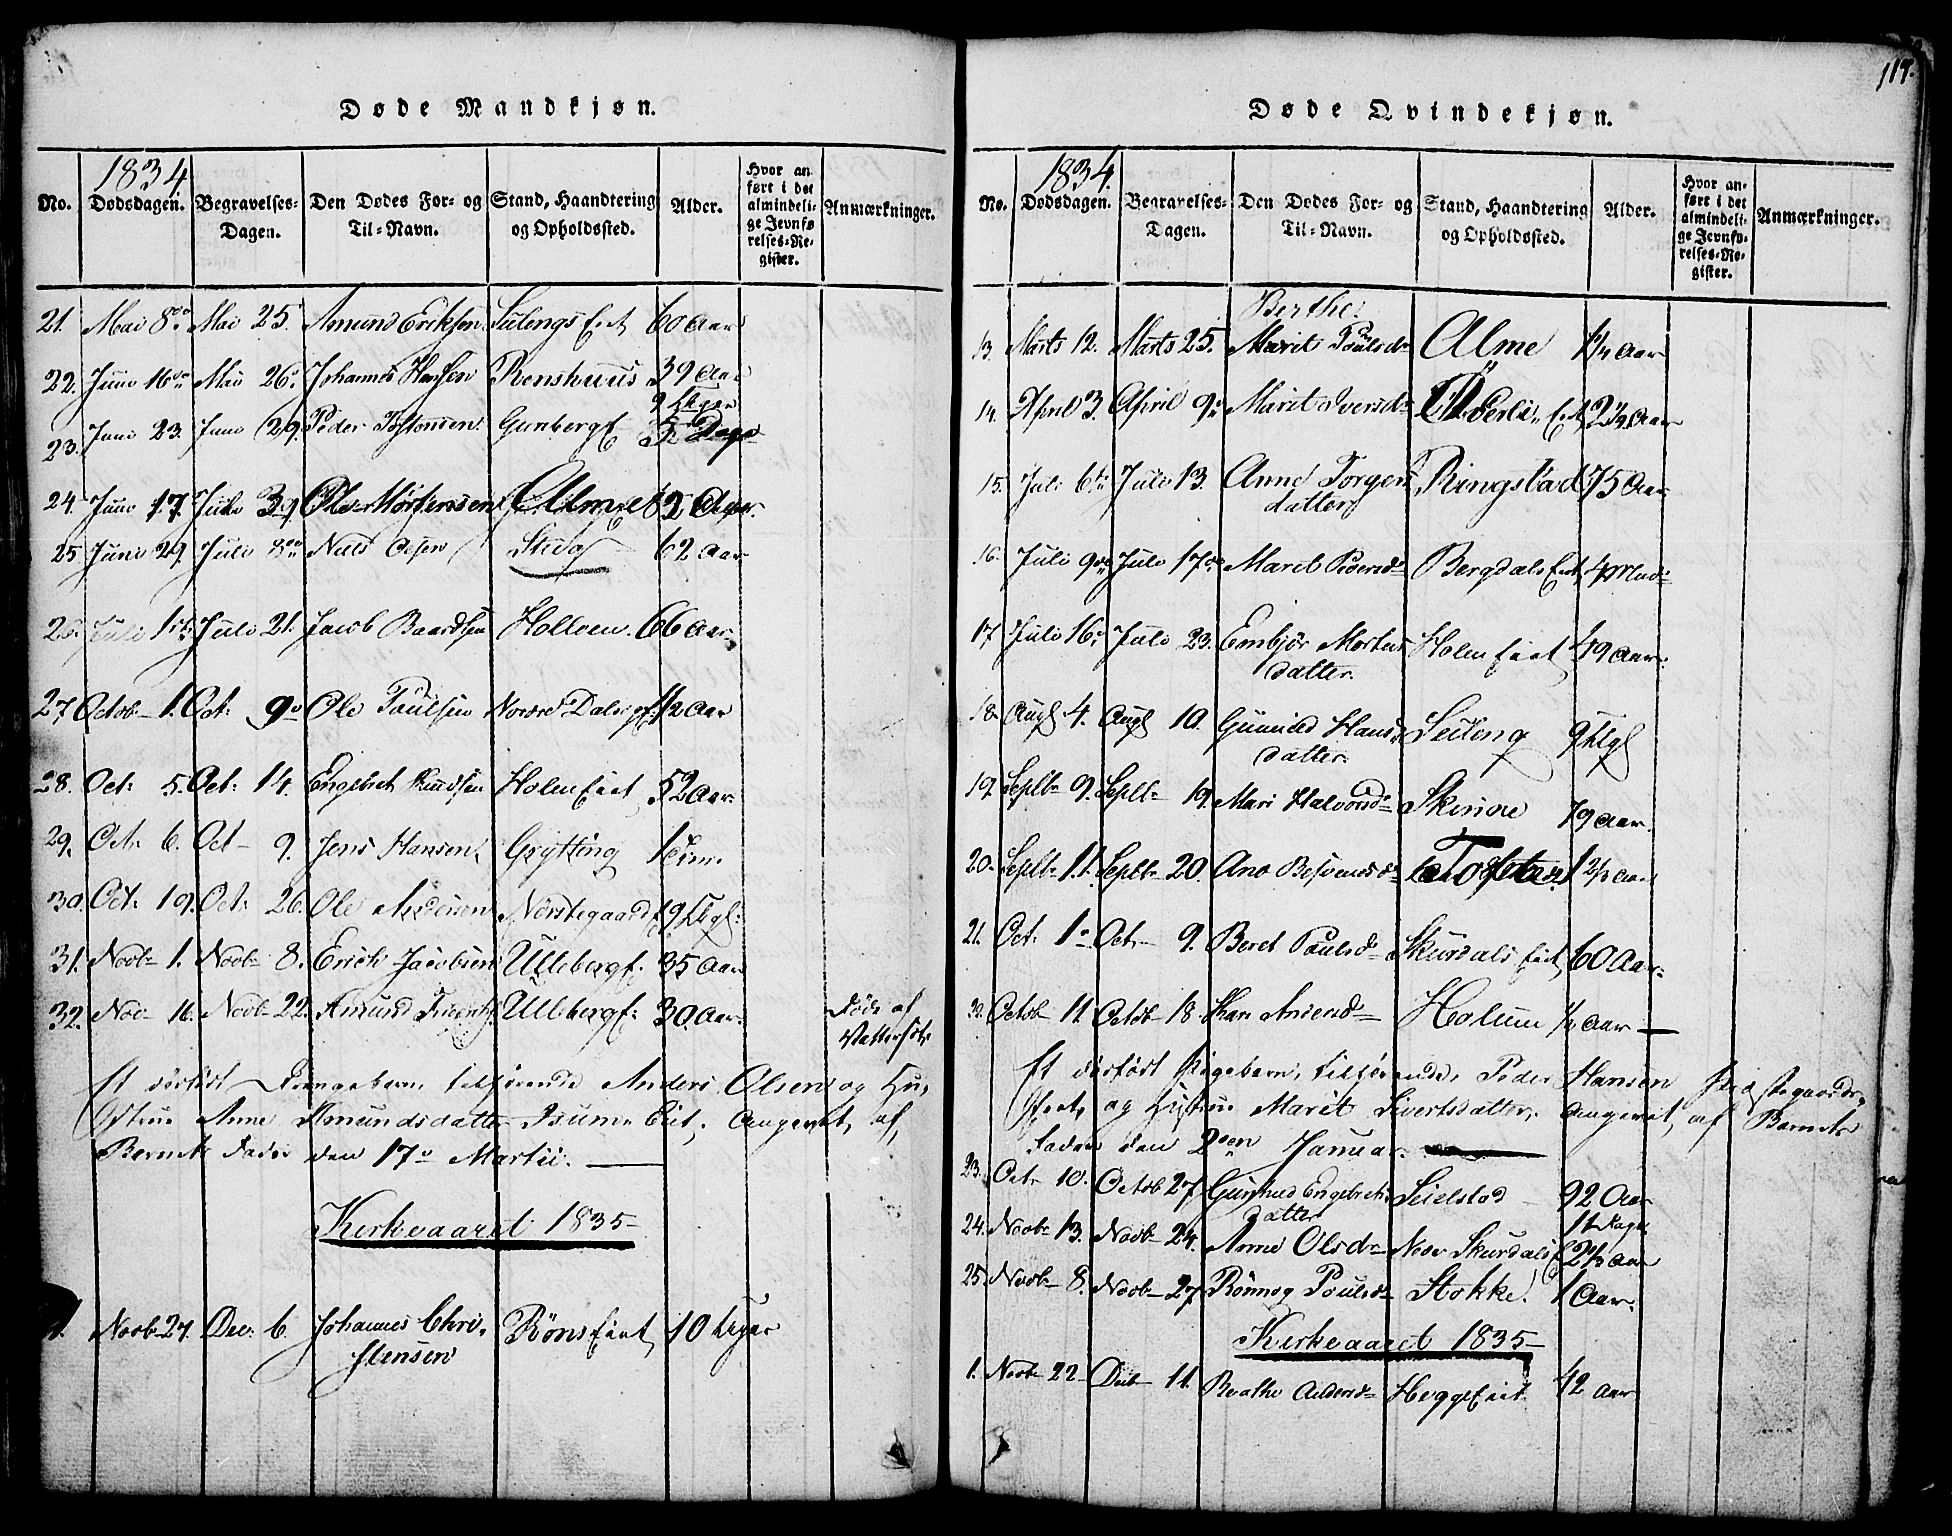 117.
Døde Mandkjøn.
1834.
No. Dødsdagen. Begravelses-Dagen. Den Dødes For- og Til-Navn. Stand, Haandtering og Opholdssted. Alder. Hvor anført i det almindelige Jevnførelses-Register. Anmærkninger.
21. Mai 8de Mai 25. Amund Eriksen Sülengs Eiet 60 Aar
22. Juni 16de Mai 26. Johannes Hansen Renshuus 39 Aar
9 Uger
23. Juni 23. Juni 29. Peder Gunberg 5 Dage
24. Juni 17. 39. Ole Mortensen Alme
25 Juni 29. Juli 8de Niels Olsen Steig 62 Aar
26. Juli 1ste Juli 21. Jacob Baardsen Holloen. 66 Aar
27 Octob. 1. Oct: 9de Ole Poulsen Nordre Dale 1½ Aar
28. Oct: 5. Oct: 14. Engebret Knudsen Holen Eiet 52 Aar
29. Oct. 6. Oct 9. Jens Hansen Grytting 1
30. Oct: 19. Oct: 26. Ole Nørstegaard 19 Ugl:
31. Novb. 1. Novb. 8. Erich Jacobsen Ulleberg 35 Aar
32. Nov 16. Novb. 22. Amund Ulleberg 30 Aar. Døde af Vattersot
Et dødfødt Drengebarn, tilhørende Anders Olsen og Hu-
strue Anne Amundsdatter Isum Eiet; Angivet, af,
Barnets Fader den 17de Martii.
Kirkeaaret 1835
1. Novb 27. Dec. 6 Johannes Chri-
stensen Røns Eiet 10 Uger
Døde Qvindekjøn.
1834.
No. Dødsdagen. Begravelses-Tagen. Den Dødes For- og Til-Navn. Stand, Haandtering og Opholdssted. Alder. Hvor anført i det almindelige Jevnførelses-Register. Anmærkninger.
Berthe
13. Marts 12. Marts 25. Marit Poulsd. Alme 1¼ Aar
14. April 3. April 9de Marit Iversd. Eiet 2½ Aar
15. Juli 6te Juli 13. Anne Torgers
datter Ringstad 75 Aar
16. Juli 9de Juli 17de Marit Pedersd. Bergdals Eiet 4 Mnd
17 Juli 16. Juli 23. Embjør Mortens
datter. Holen Eiet 49 Aar.
18. Augs 4. Augs 10. Gunild Hans
datter. Süleng 9 Ugl
19. Septb. 9. Septb. 19. Mari Halvorsd. Skurdal 79 Aar.
20. Septb. 11. Septb. 20. Ane Tofte 1 2/3 Aar
21. Oct: 1. Oct. 9. Beret Poulsd. Skurdals Eiet 60 Aar.
Octob. 11. Octob. 18. Kari Holum ½ Aar
Et dødfødt Pigebarn, tilhørende, Peder Hansen Præstegaards,
Eiet, og Hustrue Marit Sivertsdatter. Angivet, af Barnets
Fader den 2den Januar.
23. Oct. 10. Octob 27 Gunhild Engebrets
datter Seielstad 92 Aar
24. Novb. 13. Novb. 24. Anne Olsd. Nedr Skurdals 2½ Aar
25. Novb. 8. Novb. 27 Rønnog Poulsd. Stokke. 1 Aar.
Kirkeaaret 1835
1. Novb. 22 Deb 11. Beathe Andersd. Hegge Eiet 42 Aar